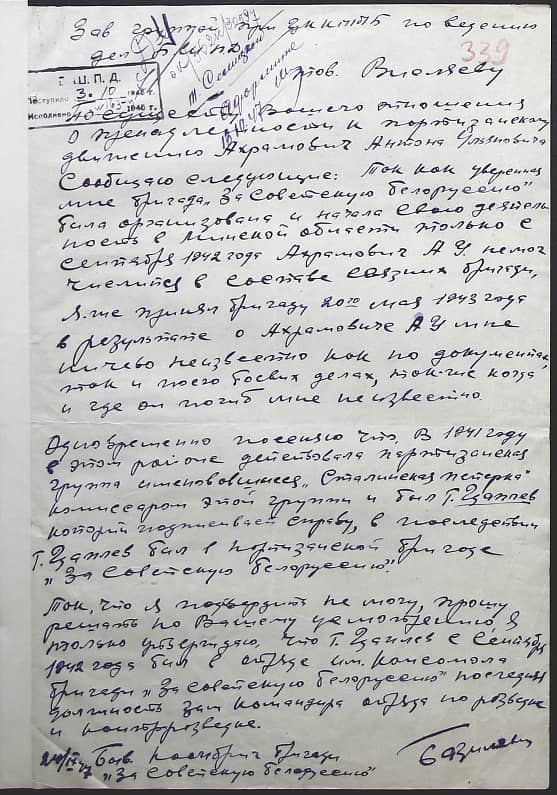 Зав группой при ЦК КП/б/Б по ведению
дел БШПД
339
тов. Висляеву
Б.Ш.П.Д.
Поступило 3. /10 1946 г.
Исполнено 1946 г.
Оформите
13.12.47
По существу Вашего отношения
о пренадлежности к партизанскому
движению Ахрамович Антона Ульяновича
Сообщаю следующие: Так как уверенная
мне бригада „За Советскую белоруссию"
была организована и начала свою деятель
ность в Минской области только с
Сентября 1942 года Ахрамович А У. не мог
числится в составе связных бригады,
Я-же принял бригаду 20го мая 1943 года
в результате о Ахрамовиче А У мне
ничево неизвестно как по документах,
так и по его боевых делах, так-же когда
и где он погиб мне неизвестно.
Одновременно поесняю что, В 1941 году
в этом районе действовала партизанская
группа именовавшиеся „Сталинская пятерка"
комиссаром этой группы и был Т. Цаплев
который подписывает справку, в последствии
Т. Цаплев был в партизанской бригаде
„За Советскую белоруссию".
Так, что я подтвердить не могу, прошу
решать по Вашему усмотрению Я
только утверждаю, что Т. Цаплев с Сентября
1942 года был в отряде им. Комсомола
бригады „За советскую белоруссию" последняя
должность зам командира отряда по разведке
и контрразведке.
Быв. комбриг бригады
„За Советскую белоруссию"